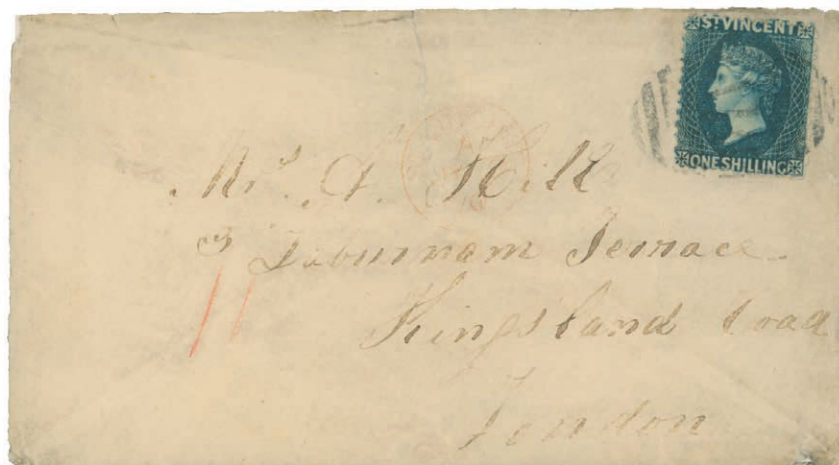 ST. VINCENT
ONE SHILLING
Mr. A. Hill
3 Laburnam Terrace
Kingsland Road
London